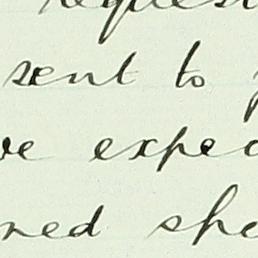 reques
sent to
ve expec
ned she